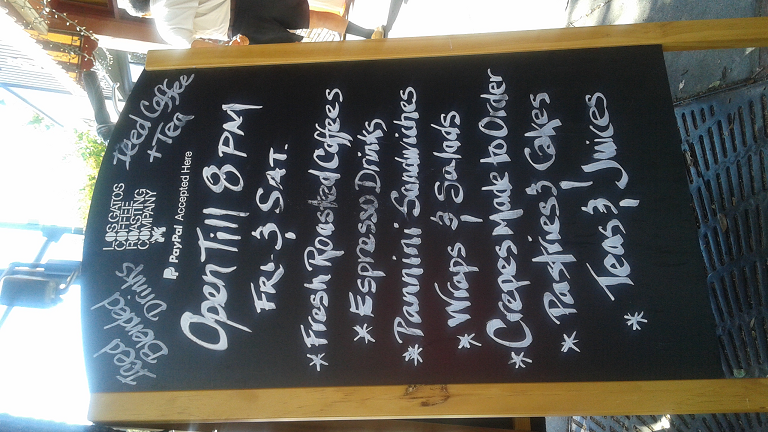 Iced
Blended
Drinks
LOS GATOS
COFFEE
ROASTING
COMPANY
PayPal Accepted Here
Iced Coffee
+ Tea
Open Till 8 PM
FRI. & SAT.
* Fresh Roasted Coffees
* Espresso Drinks
* Pannini Sandwiches
* Wraps & Salads
* Crepes Made to Order
* Pastries & Cakes
* Teas & Juices